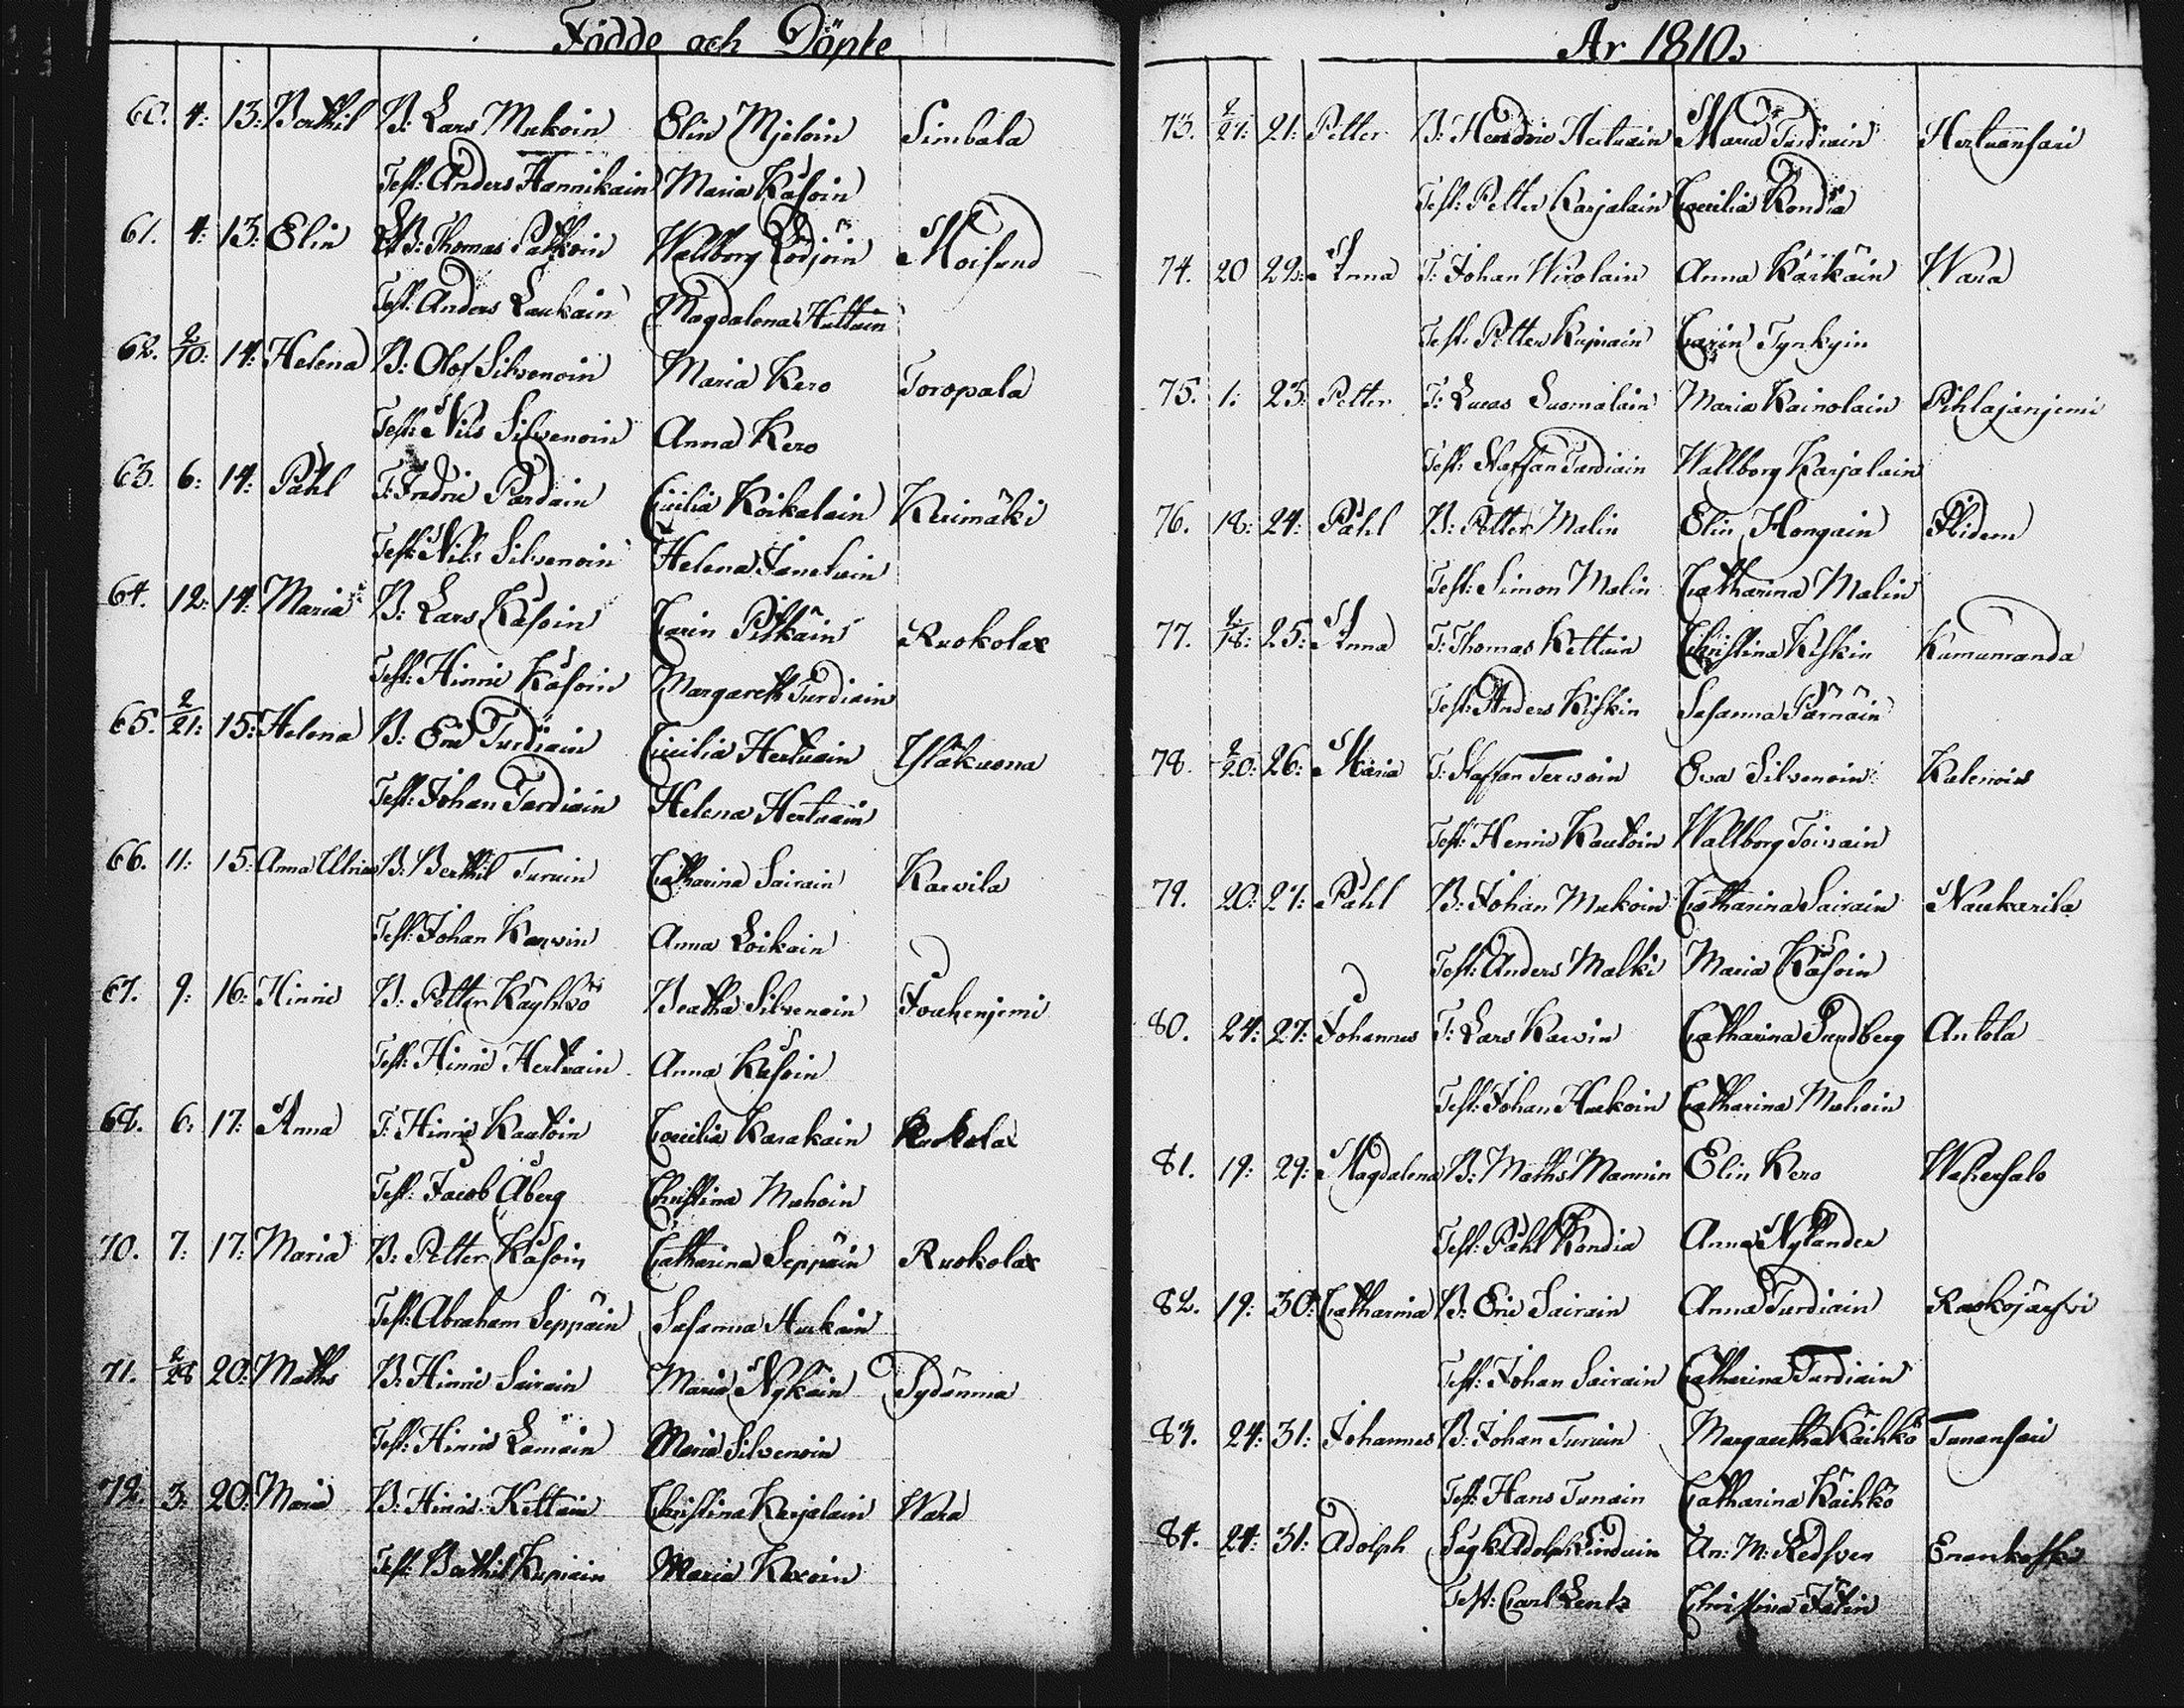 Födde och Döpte
60. 4: 13: Berthil B: Lars Mukoin Elin Mjeloin Simbala
Test: Anders Hannikain Maria Käsoin
61. 4: 13: Elin B: Thomas Wallborg Moisund
Test: Anders Laukain Magdalena Hultuin
62. 2/10: 14: Helena B: Olof Silvenoin Maria Kero Toropala
Test: Nils Silvenoin Anna Kero
63. 6: 14: Påhl T: Fredric Pardain Cicilia Koikalain Kerimäki
Test: Nils Silvenoin Helena
64. 12: 14: Maria B: Lars Käsoin Carin Pitkäin Ruokolax
Test: Hinric Käsoin Margareth Turdiain
65. 2/21: 15: Helena B: Eric Turdiain Cicilia Hertuain
Test: Johan Turdiain Helena Hertuain
66. 11: 15: Anna Ulrica B: Berthil Turuin Catharina Sairain Karvila
Test: Johan Karvin Anna Loikain
67. 9: 16: Hinric B: Petter Käyhkö Beatha Silvenoin
Test: Hinric Hertuain Anna Käsoin
6: 17: Anna T: Hinric Kautoin Coecilia Karakain Ruokolax
Test: Jacob Åberg Christina Muhoin
70. 7: 17: Maria B: Petter Käsoin Catharina Seppäin Ruokolax
Test: Abraham Seppäin Susanna Huckain
71. 2/28 20: Maths B: Hinric Sairain Maria Nykäin Sydänma
Test: Hinric Lamäin Maria Silvenoin
72. 3: 20: Maria B: Hinric Kettuin Christina Karjalain Wara
Test: Berthil Kupiain Maria
År 1810.
73. 2/21: 21: Petter B: Hendric Hertuain Maria Turdiain Hertuansari
Test: Petter Karjalain Coecilia Kondia
74. 20 22: Anna T: Johan Wirolain Anna Kärkäin Wara
Test: Petter Kupiain Carin Tynkyin
75. 1: 23: Petter T: Lucas Suomalain Maria Kainolain Pihlajanjemi
Test: Staffan Turdiain Wallborg Karjalain
76. 18: 24: Påhl B: Petter Malin Elin Hongain Ibidem
Test: Simon Malin Catharina Malin
77. 2/18: 25: Anna T: Thomas Kettuin Christina Kiskin Kumunranda
Test: Anders Kiskin Susanna Pärnäin
78. 2/20: 26: Maria T: Staffan Tervoin Eva Silvenoin
Test: Henric Kautoin Wallborg Toivain
79. 20: 27: Påhl B: Johan Mukoin Catharina Sairain Naukarila
Test: Anders Malki Maria Käsoin
80. 24: 27: Johannes T: Lars Karvin Catharina Sundberg Antola
Test: Johan Huckoin Catharina Muhoin
81. 19: 29: Magdalena B: Maths Mannin Elin Kero Wehersalo
Test: Påhl Kondia Anna Nylander
82. 19: 30: Catharina B: Eric Sairain Anna Turdiain Raskojärfvi
Test: Johan Sairain Catharina Turdiain
83. 24: 31: Johannes B: Johan Turuin Margaretha Käihkö Turunsari
Test: Hans Turuin Catharina Käihkö
84. 24: 31: Adolph Adolph An: M: Redsven Enonkoski
Test: Carl Lentz Christina